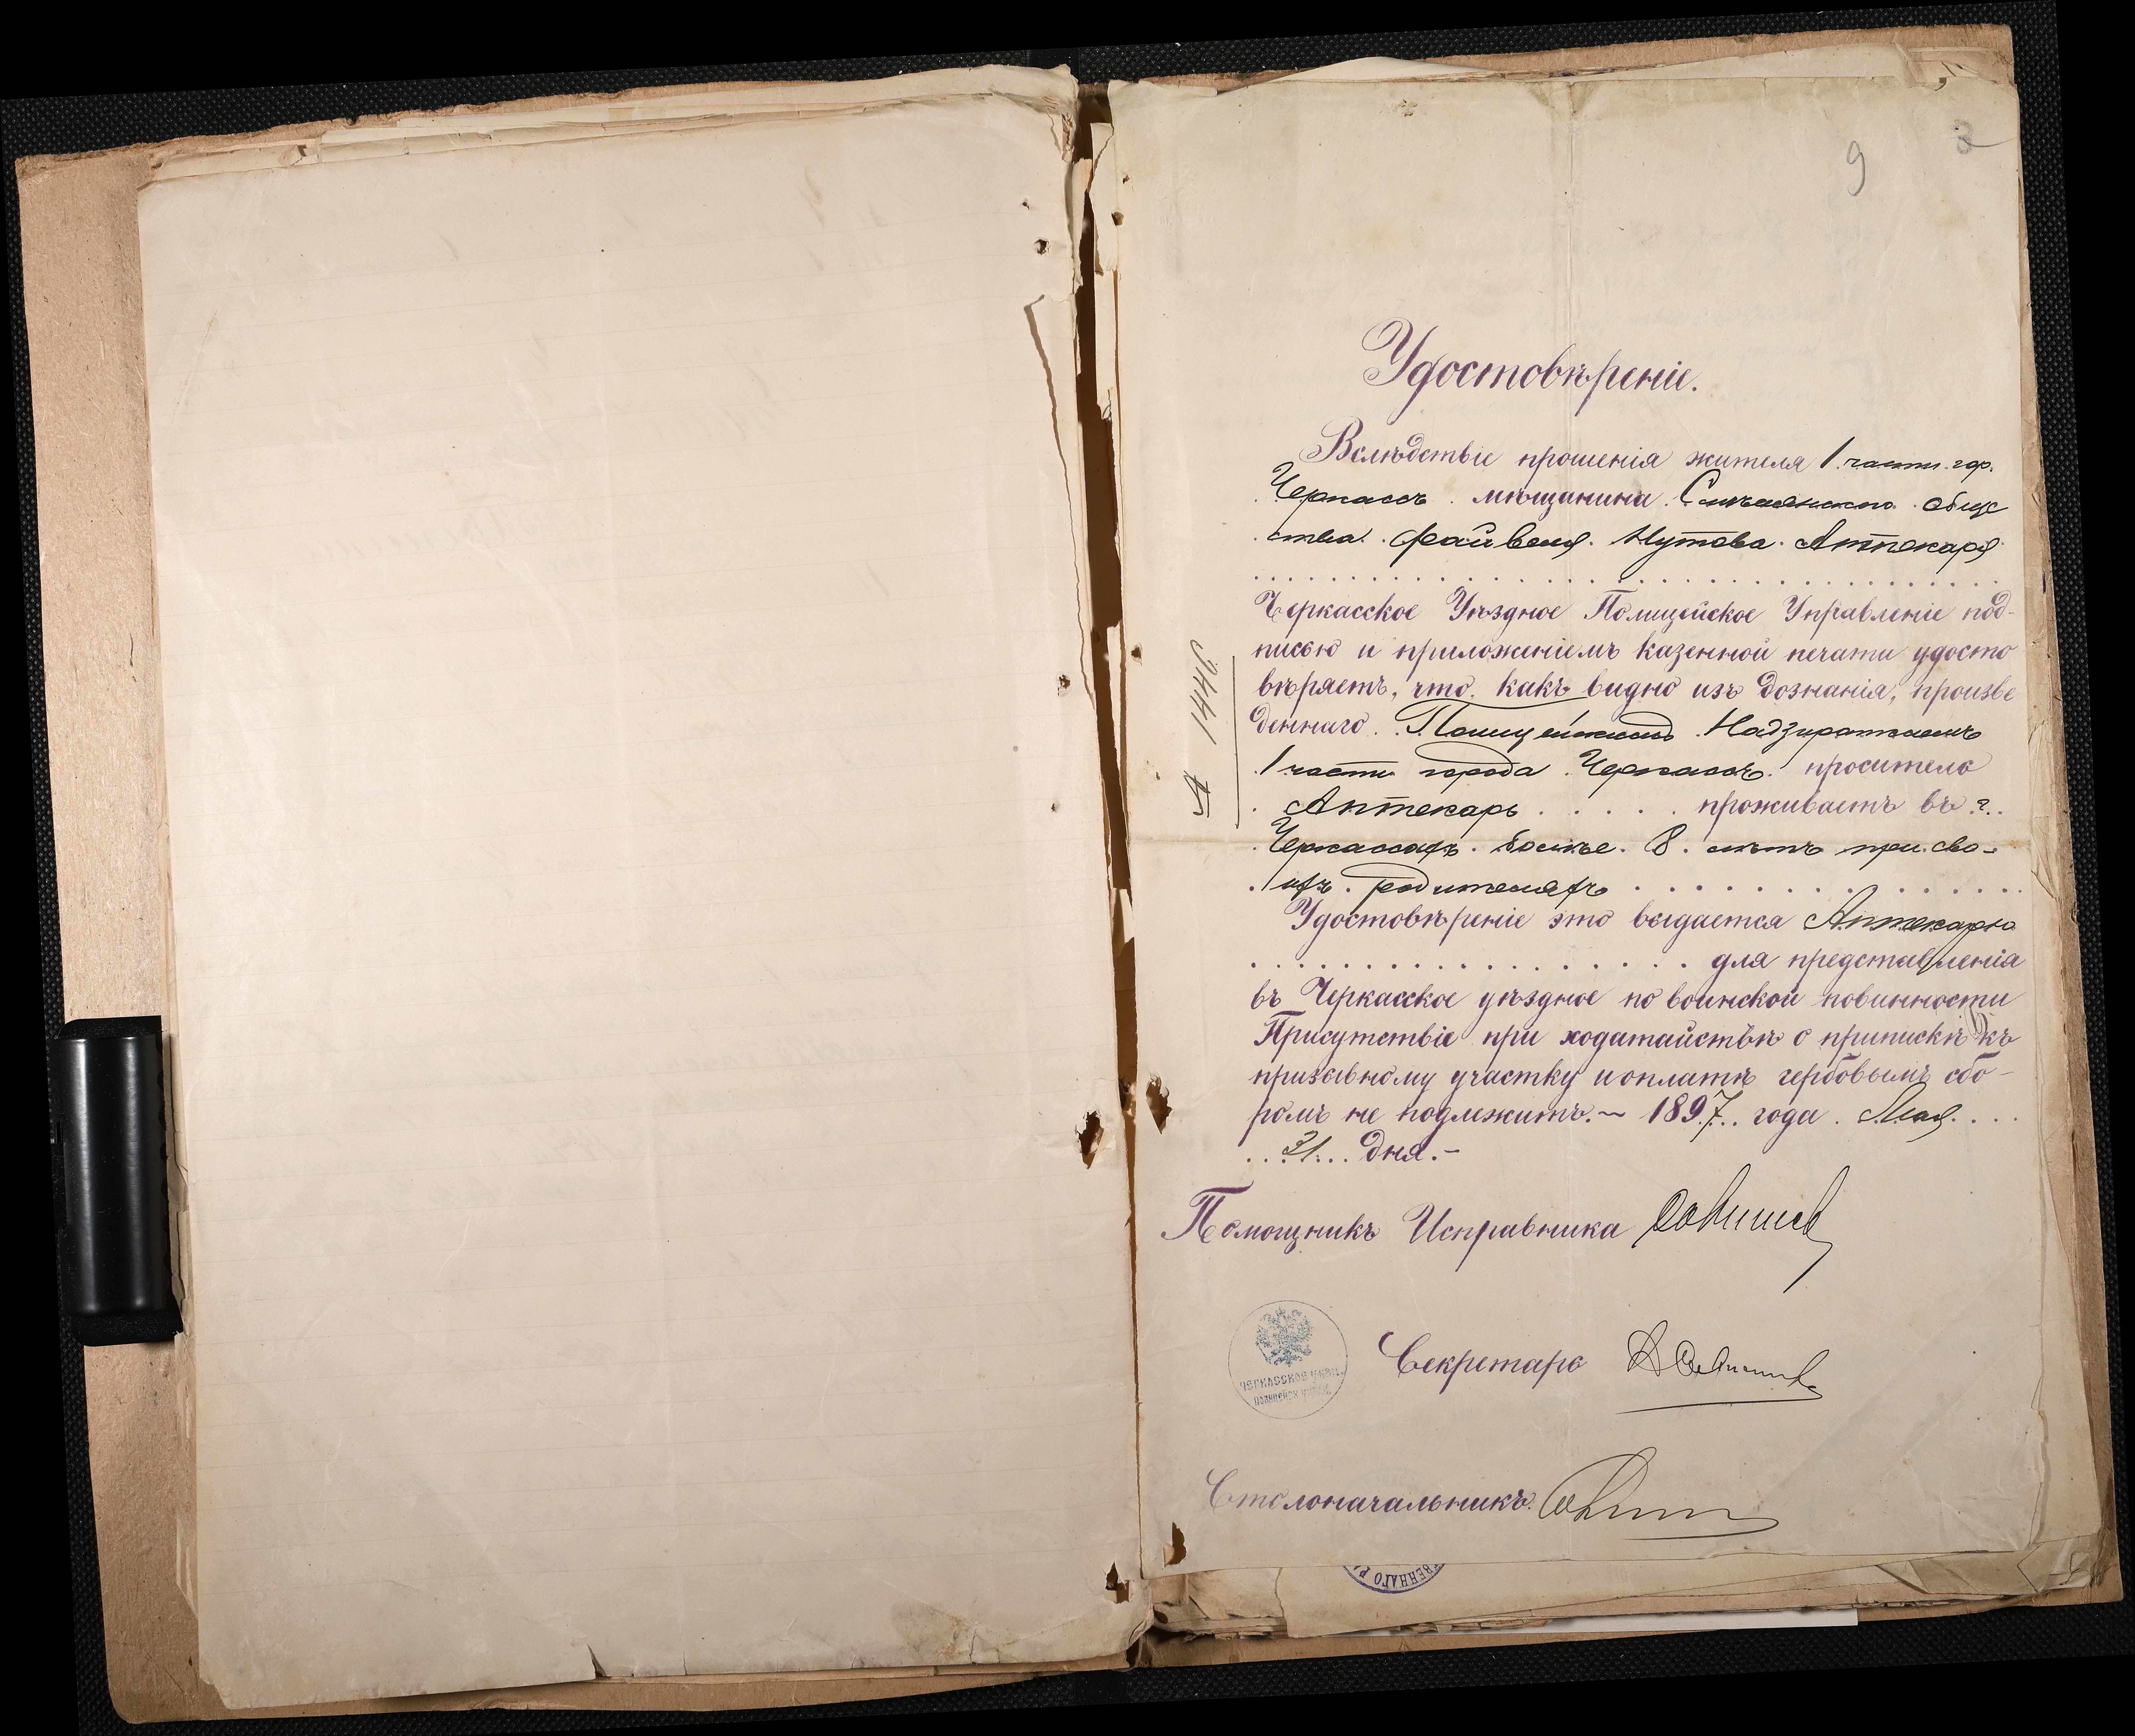 9
Удостовѣреніе.
Вслѣдствіе прошенія жителя 1 части гор.
Черкассъ мѣщанина Смѣлянскаго обще
ства Файвеля Нутова Аптекаря
Черкасское Уѣздное Полицейское Управленіе под-
писью и приложеніемъ казенной печати удосто
вѣряетъ, что, какъ видно изъ дознанія, произве
деннаго Полицейскимъ Надзирателемъ
1 части города Черкассъ проситель
Аптекарь проживаетъ въ г.
Черкассахъ болѣе 8 лѣтъ при сво-
ихъ родителяхъ
Удостовѣреніе это выдается Аптекарю
для представленія
въ Черкасское уѣздное по воинской повинности
Присутствіе при ходатайствѣ о припискѣ къ
призывному участку и оплатѣ гербовымъ сбо-
ромъ не подлежитъ.~ 1897 года Мая
31 дня.-
Помощникъ Исправника
Секретарь
ЧЕРКАССКОЕ УѢЗДН.
ПОЛИЦЕЙСК. УПРАВ.
Столоначальникъ
ВЕННАГО